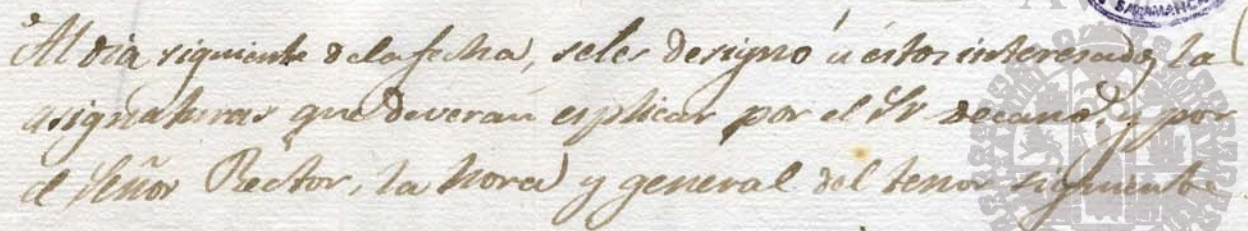 Al dia siguiente de la fecha, seles designó á estos interesados la
asignaturas que deveran esplicar por el Sr Decano, y por
el Señor Rector, la hora y general del tenor siguiente
SALAMANCA